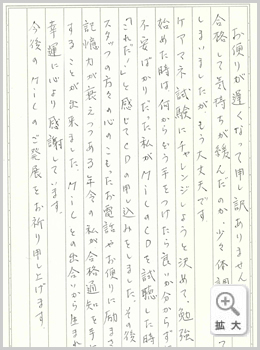 お便りが遅くなって申し訳ありません
合格して気持ちが緩んだのか少々体調
しまいましたがもう大丈夫です。
ケアマネ試験にチャレンジしようと決めて、勉強
始めた時は何からどう手をつけたら良いか分からず
不安ばかりだった私がMicのCDを試聴した時
「これだ!」と感じてCDの申し込みをしました。その後
スタッフの方々の心のこもったお電話やお便りに励まさ
記憶力が衰えつつある年令の私が合格通知を手に
することが出来ました。Micとの出会いから生まれ
幸運に心より感謝しています。
今後のMicのご発展をお祈り申し上げます。
拡大